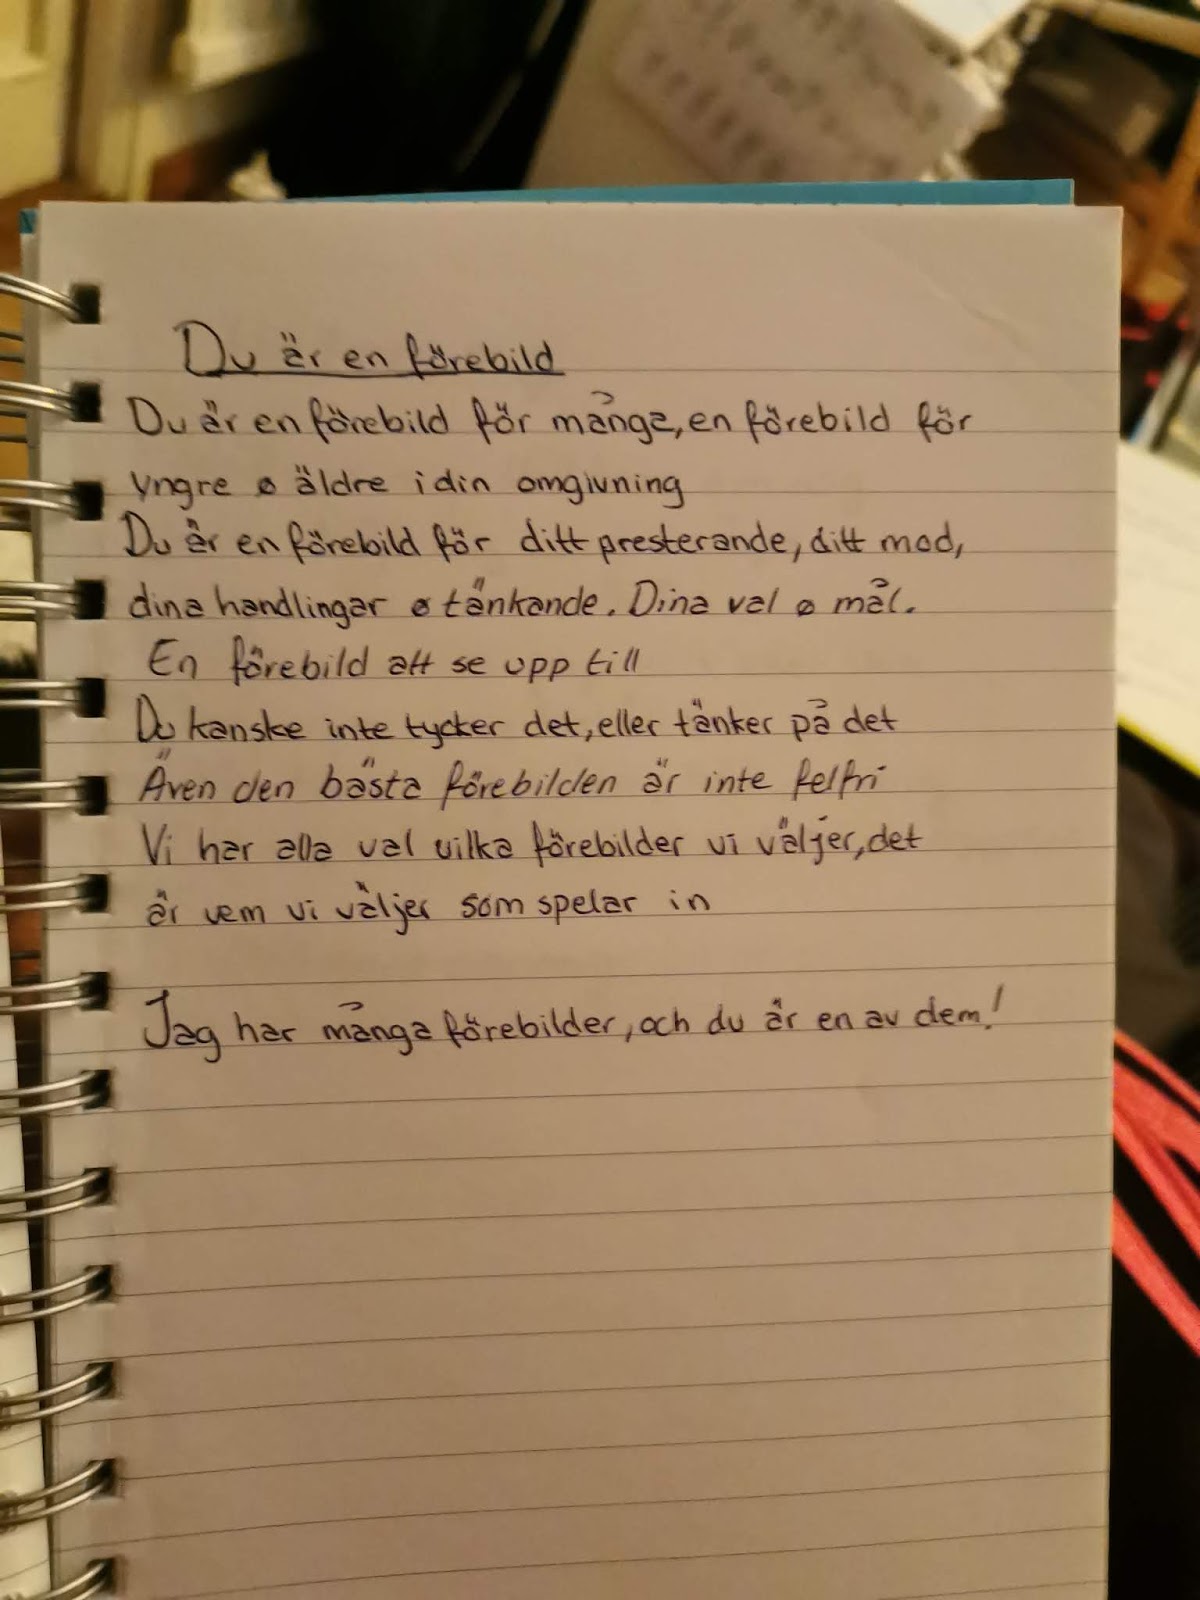 Du är en förebild
Du är en förebild för många, en förebild för
yngre ø äldre i din omgivning
Du är en förebild för ditt presterande, ditt mod,
dina handlingar ø tänkande. Dina val ø mål.
En förebild att se upp till
Du kanske inte tycker det, eller tänker på det
Även den bästa förebilden är inte felfri
Vi har alla val vilka förebilder vi väljer, det
är vem vi väljer som spelar in
Jag har många förebilder, och du är en av dem!